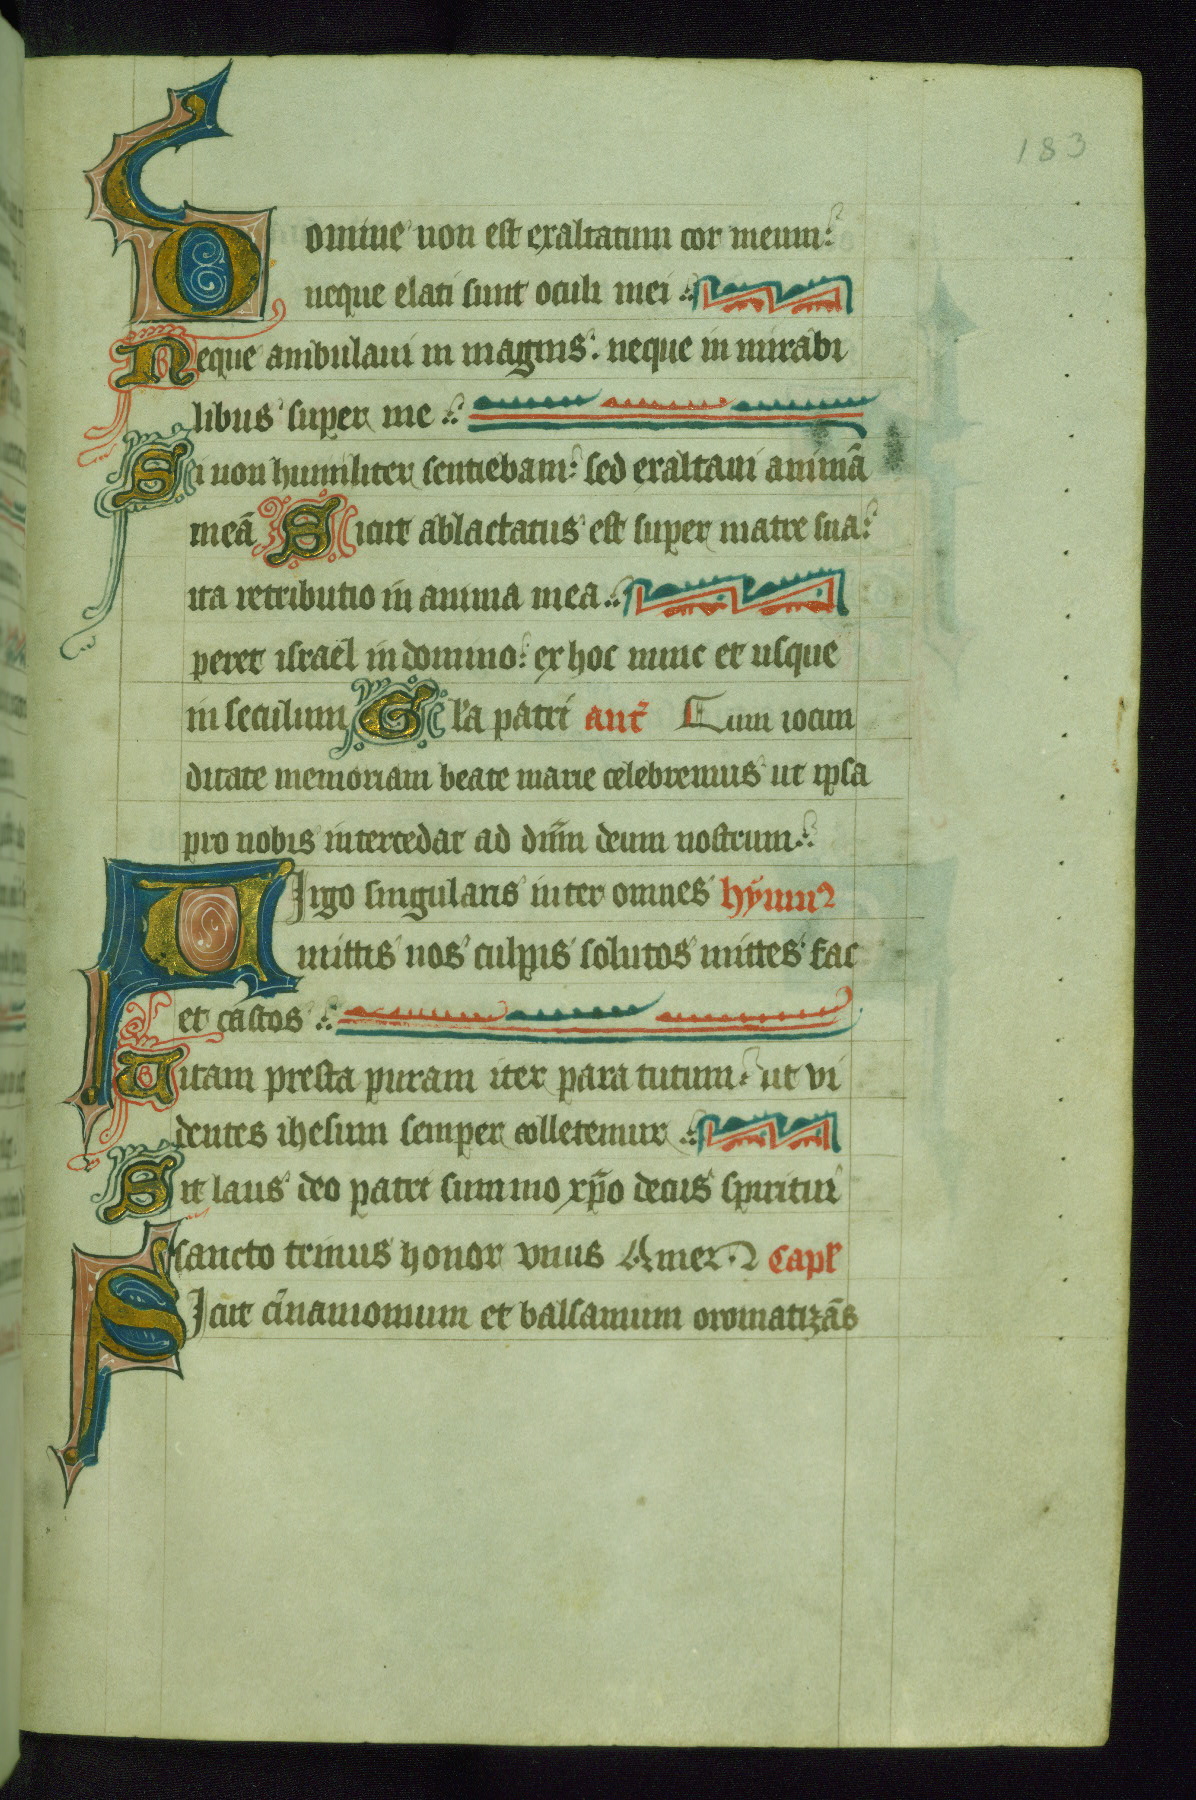 183
Domine non est exaltatum cor meum:
neque elati sunt oculi mei
Neque ambulaui in magnis: neque in mirabi
libus super me
Si non humiliter sentiebam: sed exaltaui animā
meā Sicut ablactatus est super matre sua:
ita retributio in anima mea
peret israel in domino: ex hoc nunc et usque
in seculum Gl'a patri ant' Cum iocun
ditate memoriam beate marie celebremus ut ipsa
pro nobis intercedat ad dn̄m deum nostrum
Virgo singularis inter omnes hymn'
mittis nos culpis solutos mittes fac
et castos
Uitam presta puram iter para tutum: ut vi
dentes ihesum semper colletemur
Sit laus deo patri summo xp̄o decus spiritui
sancto trinus honor vnus Amen capl'
Sicut cīnamomum et balsamum oromatizās